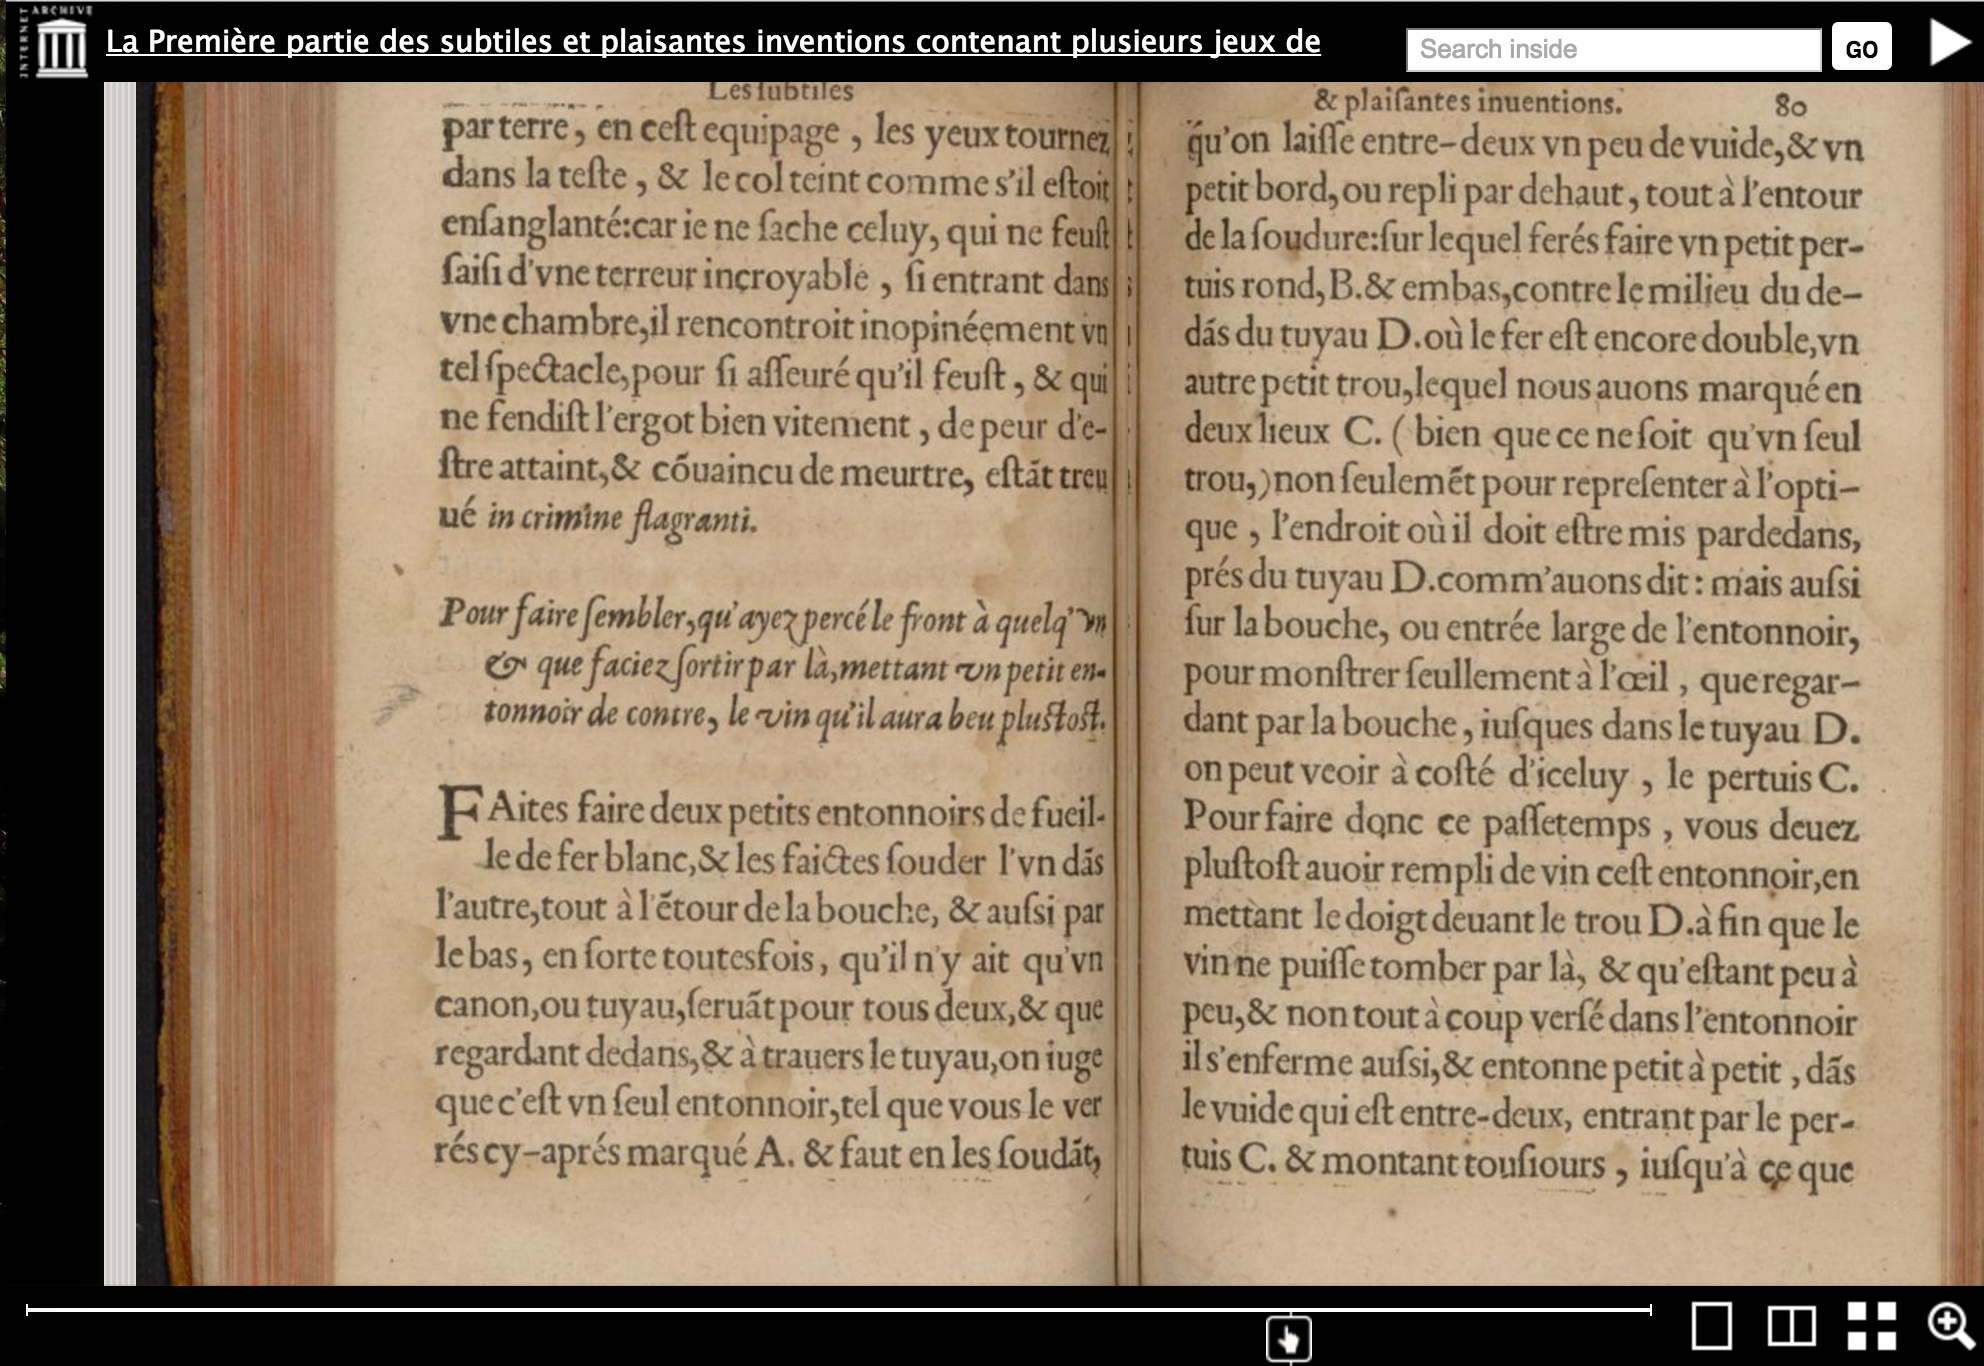 INTERNET ARCHIVE
La Première partie des subtiles et plaisantes inventions contenant plusieurs jeux de
Search inside
GO
Les ſubtiles
par terre, en ceſt equipage, les yeux tournez
dans la teſte, & le col teint comme s'il eſtoit
enſanglanté: car ie ne ſache celuy, qui ne feuſt
ſaiſi d'vne terreur incroyable, ſi entrant dans
vne chambre, il rencontroit inopinéement vn
tel ſpectacle, pour ſi aſſeuré qu'il feuſt, & qui
ne fendiſt l'ergot bien vitement, de peur d'e-
ſtre attaint, & cõuaincu de meurtre, eſtãt treu
ué in crimine flagranti.
Pour faire ſembler, qu'ayez percé le front à quelq'vn
& que faciez ſortir par là, mettant vn petit en-
tonnoir de contre, le vin qu'il aura beu pluſtoſt.
FAites faire deux petits entonnoirs de fueil-
le de fer blanc, & les faictes ſouder l'vn dãs
l'autre, tout à l'ẽtour de la bouche, & auſsi par
le bas, en ſorte toutesfois, qu'il n'y ait qu'vn
canon, ou tuyau, ſeruãt pour tous deux, & que
regardant dedans, & à trauers le tuyau, on iuge
que c'eſt vn ſeul entonnoir, tel que vous le ver
rés cy-aprés marqué A. & faut en les ſoudãt,
& plaiſantes inuentions. 80
qu'on laiſſe entre-deux vn peu de vuide, & vn
petit bord, ou repli par dehaut, tout à l'entour
de la ſoudure: ſur lequel ferés faire vn petit per-
tuis rond, B. & embas, contre le milieu du de-
dãs du tuyau D. où le fer eſt encore double, vn
autre petit trou, lequel nous auons marqué en
deux lieux C. ( bien que ce ne ſoit qu'vn ſeul
trou,) non ſeulemẽt pour repreſenter à l'opti-
que, l'endroit où il doit eſtre mis pardedans,
prés du tuyau D. comm'auons dit: mais auſsi
ſur la bouche, ou entrée large de l'entonnoir,
pour monſtrer ſeullement à l'œil, que regar-
dant par la bouche, iuſques dans le tuyau D.
on peut veoir à coſté d'iceluy, le pertuis C.
Pour faire donc ce paſſetemps, vous deuez
pluſtoſt auoir rempli de vin ceſt entonnoir, en
mettant le doigt deuant le trou D. à fin que le
vin ne puiſſe tomber par là, & qu'eſtant peu à
peu, & non tout à coup verſé dans l'entonnoir
il s'enferme auſsi, & entonne petit à petit, dãs
le vuide qui eſt entre-deux, entrant par le per-
tuis C. & montant touſiours, iuſqu'à ce que